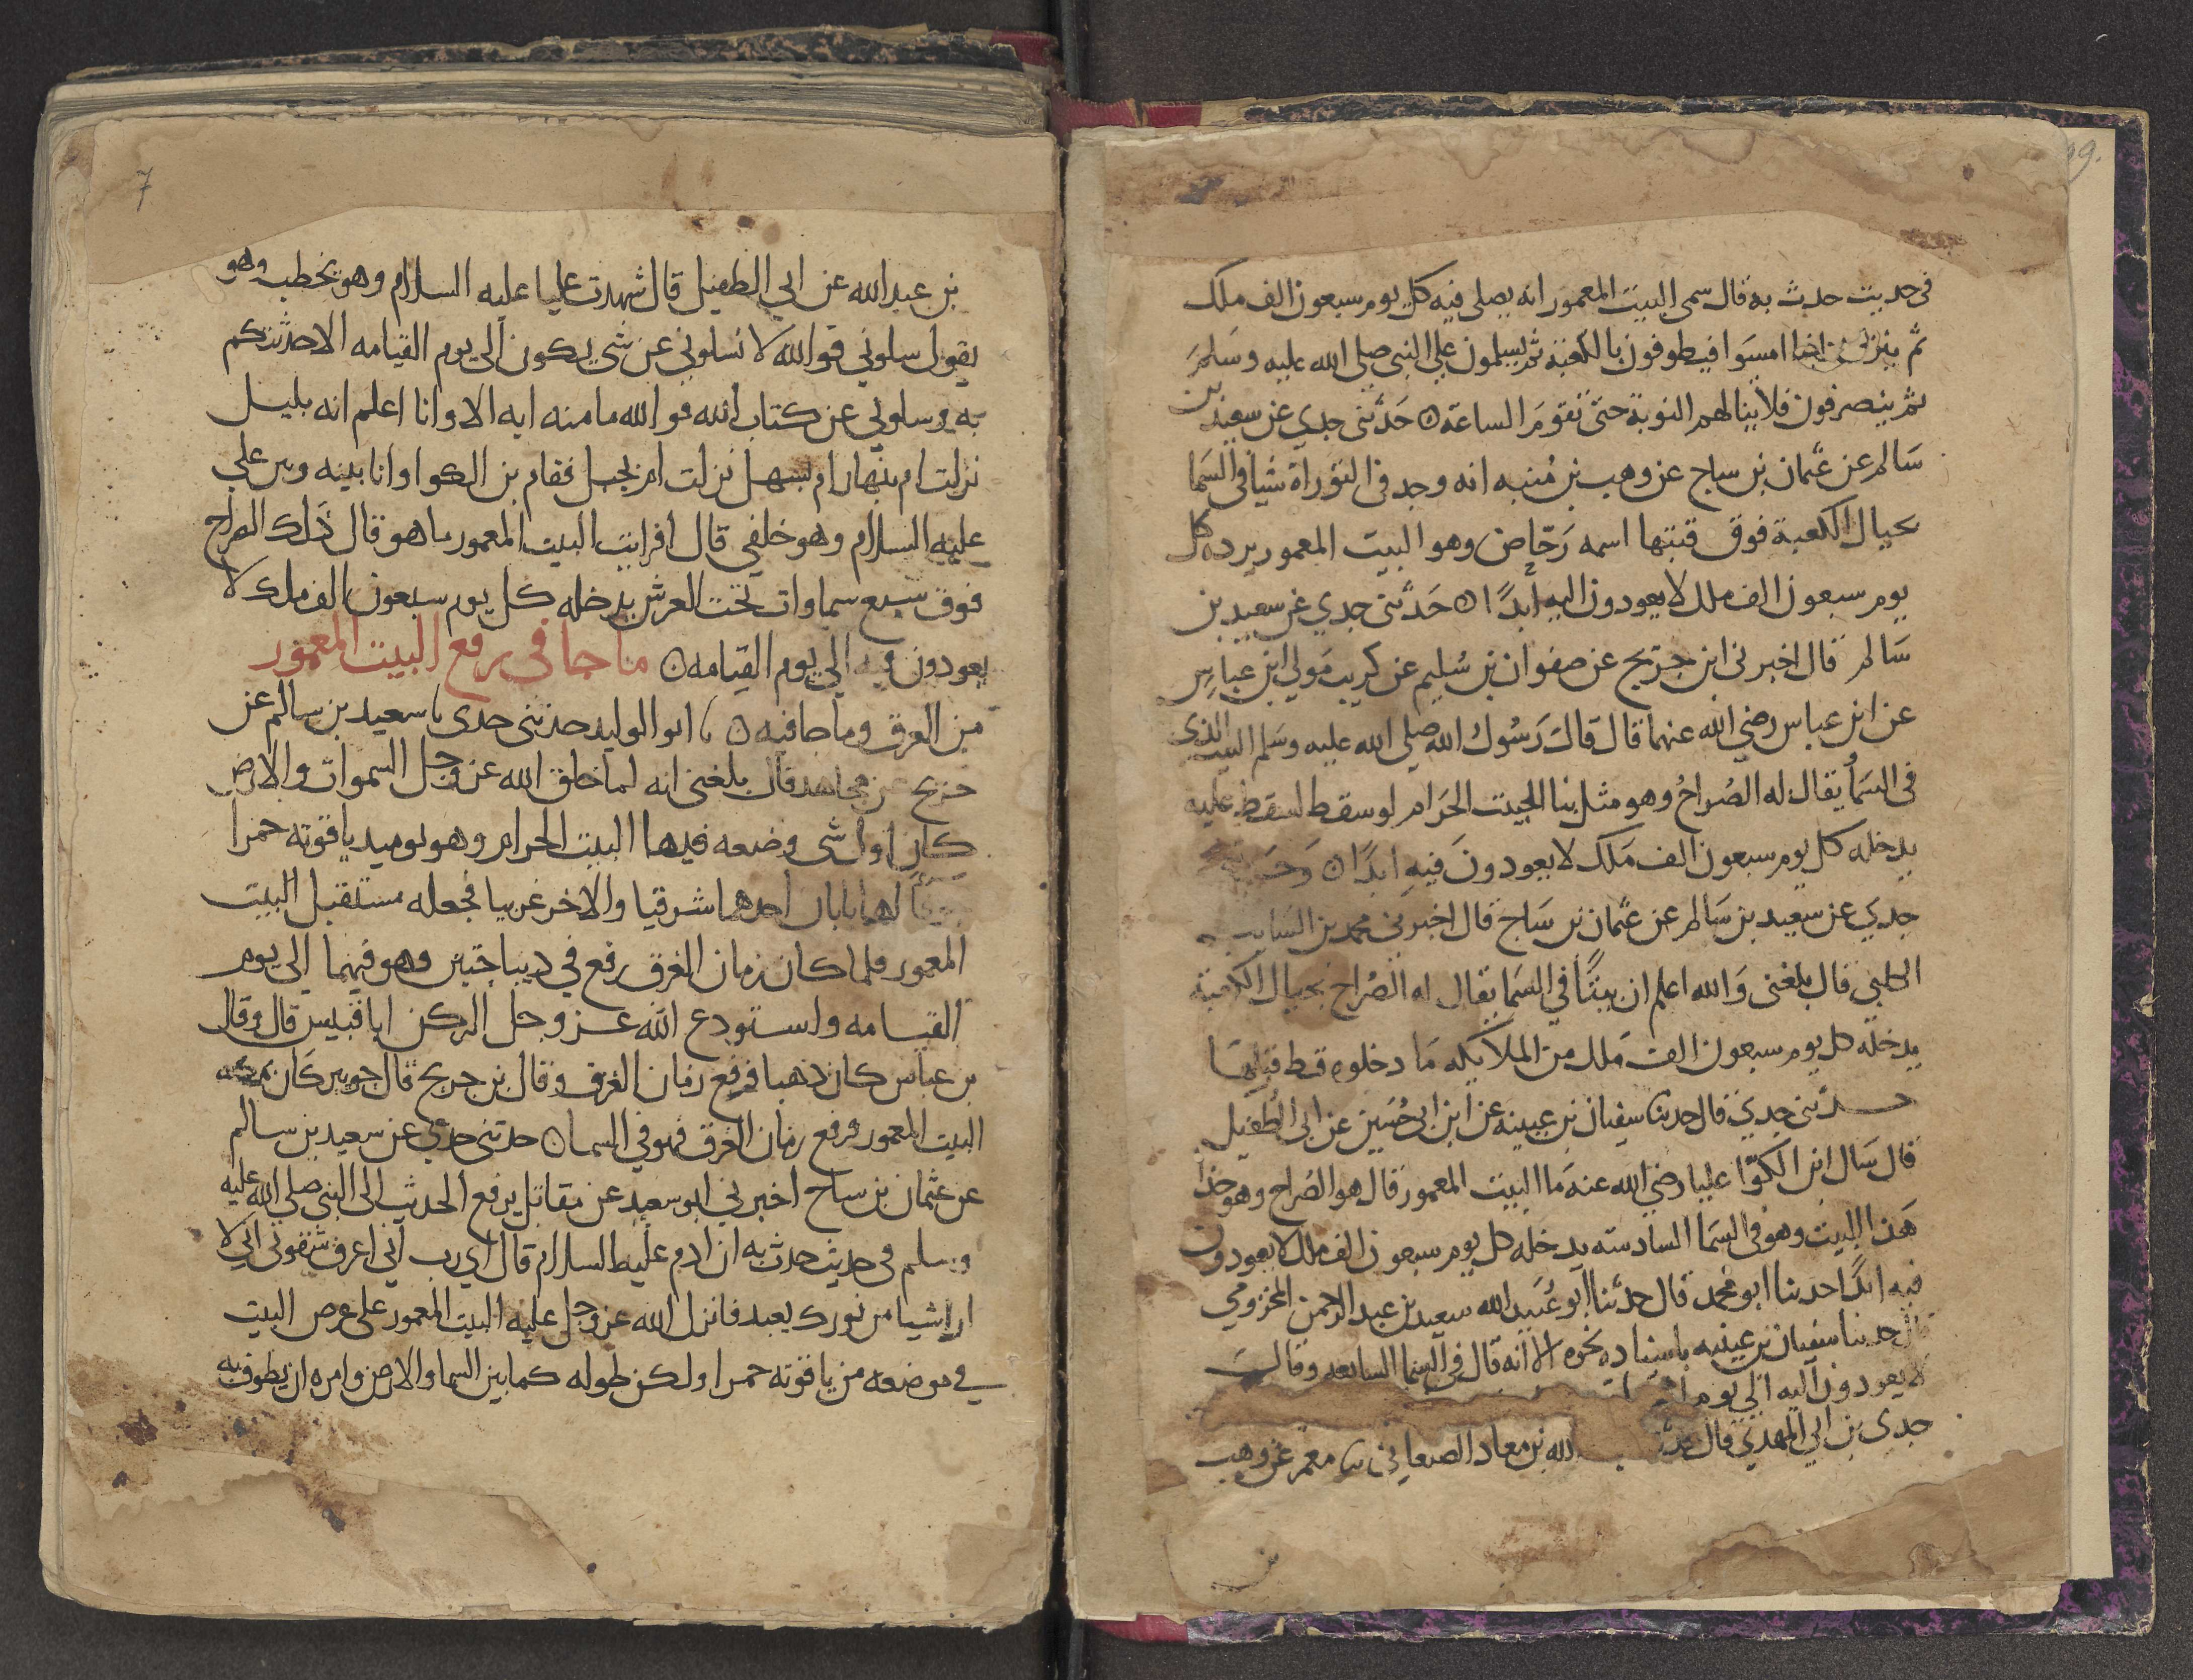 99.
في حديث حدث به قال سمى البيت المعمور انه يصلى فيه كل يوم سبعون الف ملك
ثم ينزلون اذا امسوا فيطوفون بالكعبة ثم يسلمون على النبي صلى الله عليه وسلم
ثم ينصرفون فلا ينالهم النوبة حتى تقوم الساعة ۞ حدثني جدي عن سعيد بن
سالم عن عثمان بن ساج عن وهب بن منبه انه وجد في التوراة شيا في السما
بحيال الكعبة فوق قبتها اسمه رحاض وهو البيت المعمور يرده كل
يوم سبعون الف ملك لا يعودون اليه ابدا ۞ حدثني جدي عن سعيد بن
سالم قال اخبرني ابن جريج عن صفوان بن سليم عن كريب مولى ابن عباس
عن ابن عباس رضي الله عنهما قال قال رسول الله صلى الله عليه وسلم البيت الذي
في السما يقال له الصراح وهو مثل بنا البيت الحرام لو سقط لسقط عليه
يدخله كل يوم سبعون الف ملك لا يعودون فيه ابدا ۞
جدي عن سعيد بن سالم عن عثمان بن ساج قال اخبرني محمد بن السايب
الكلبي قال بلغني والله اعلم ان بيتا في السما يقال له الصراح بحيال الكعبة
يدخله كل يوم سبعون الف ملك من الملايكه ما دخلوه قط قبلها
حدثني جدي قال حدثنا سفيان بن عيينه عن ابن ابي حسين عن ابي الطفيل
قال سال ابن الكوا عليا رضي الله عنه ما البيت المعمور قال هو الصراح وهو حذا
هذا البيت وهو في السما السادسه يدخله كل يوم سبعون الف ملك لا يعودون
فيه ابدا حدثنا ابو محمد قال حدثنا ابو عبيد الله سعيد بن عبد الرحمن المخزومي
قال حدثنا سفيان بن عيينه باسناده نحوه الا انه قال في السما السابعه وقال
لا يعودون اليه الى يوم
جدي بن ابي المهدي قال الله بن معاد الصنعاني نا معمر عن وهب
بن
7
بن عبد الله عن ابي الطفيل قال شهدت عليا عليه السلام وهو يخطب وهو
يقول سلوني فوالله لا تسلوني عن شي يكون الى يوم القيامه الا حدثتكم
به وسلوني عن كتاب الله فوالله ما منه ايه الا وانا اعلم انه بليل
نزلت ام بنهار ام بسهل نزلت ام بجبل فقام بن الكوا وانا بينه وبين علي
عليه السلام وهو خلفي قال افرايت البيت المعمور ما هو قال ذلك الصراح
فوق سبع سماوات تحت العرش يدخله كل يوم سبعون الف ملك لا
يعودون فيه الى يوم القيامه ۞ ما جا في رفع البيت المعمور
من الغرق وما جا فيه ۞ نا ابو الوليد حدثني جدي نا سعيد بن سالم عن
جريج عن مجاهد قال بلغني انه لما خلق الله عز وجل السموات والارض
كان اول شي وضعه فيها البيت الحرام وهو يوميد ياقوته حمرا
لها بابان احدهما شرقيا والاخر غربيا فجعله مستقبل البيت
المعمور فلما كان زمان الغرق رفع في ديباجتين وهو فيهما الى يوم
القيامه واستودع الله عز وجل الركن ابا قبيس قال وقال
بن عباس كان ذهبا فرفع زمان الغرق وقال بن جريج قال جويبر كان بمكه
البيت المعمور فرفع زمان الغرق فهو في السما ۞ حدثني جدي عن سعيد بن سالم
عن عثمان بن ساج اخبرني ابو سعيد عن مقاتل يرفع الحديث الى النبي صلى الله عليه
وسلم في حديث حدث به ان ادم عليه السلام قال اي رب اني اعرف شقوتي اني لا
ارا شيا من نورك يعبد فانزل الله عز وجل عليه البيت المعمور على عرض البيت
في موضعه من ياقوته حمرا ولكن طوله كما بين السما والارض وامره ان يطوف به